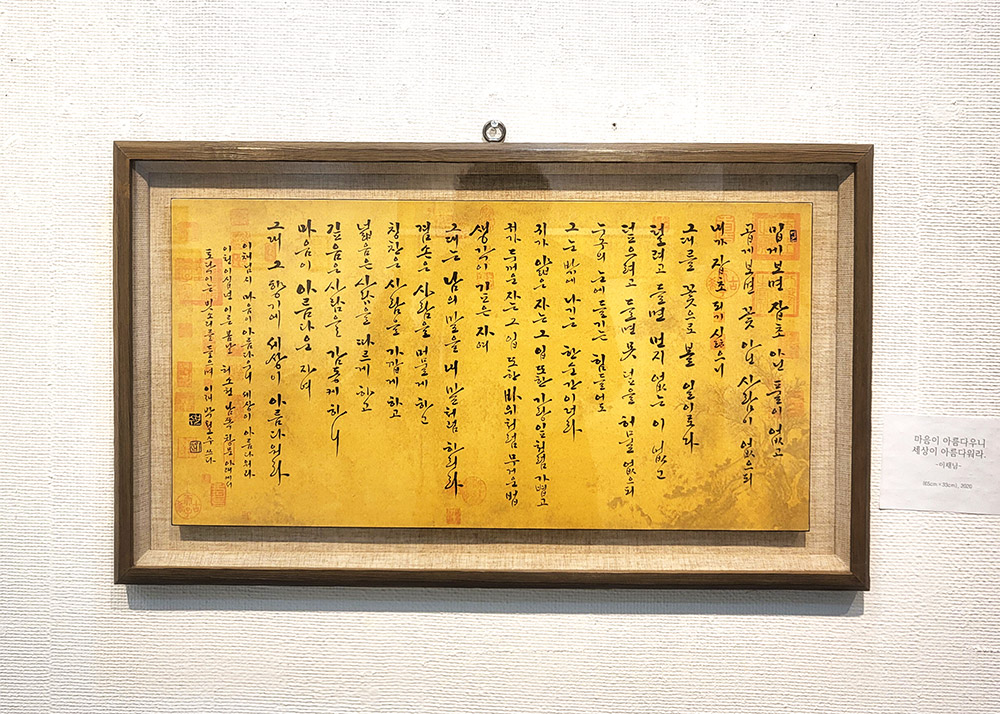 밉게 보면 잡초 아닌 풀이 없고
곱게 보면 꽃 아닌 사람이 없으되
내가 잡초 되기 싫으니
그대를 꽃으로 볼 일이로다
털려고 들면 먼지 없는 이 없고
덮으려고 들면 못 덮을 허물 없으되
누구의 눈에 들기는 힘들어도
그 눈 밖에 나기는 한순간이더라
귀가 얇은 자는 그 입 또한 가랑잎처럼 가볍고
귀가 두꺼운 자는 그 입 또한 바위처럼 무거운 법
생각이 깊은 자여
그대는 남의 말을 내 말처럼 하리라
겸손은 사람을 머물게 하고
칭찬은 사람을 가깝게 하고
넓음은 사람을 따르게 하고
깊음은 사람을 감동케 하니
마음이 아름다운 자여
그대 그 향기에 세상이 아름다워라
이채님의 마음이 아름다우니 세상이 아름다워라
이천이십년 이른 봄날
쓰다
마음이 아름다우니
세상이 아름다워라.
-이채님-
(65cm × 33cm), 2020